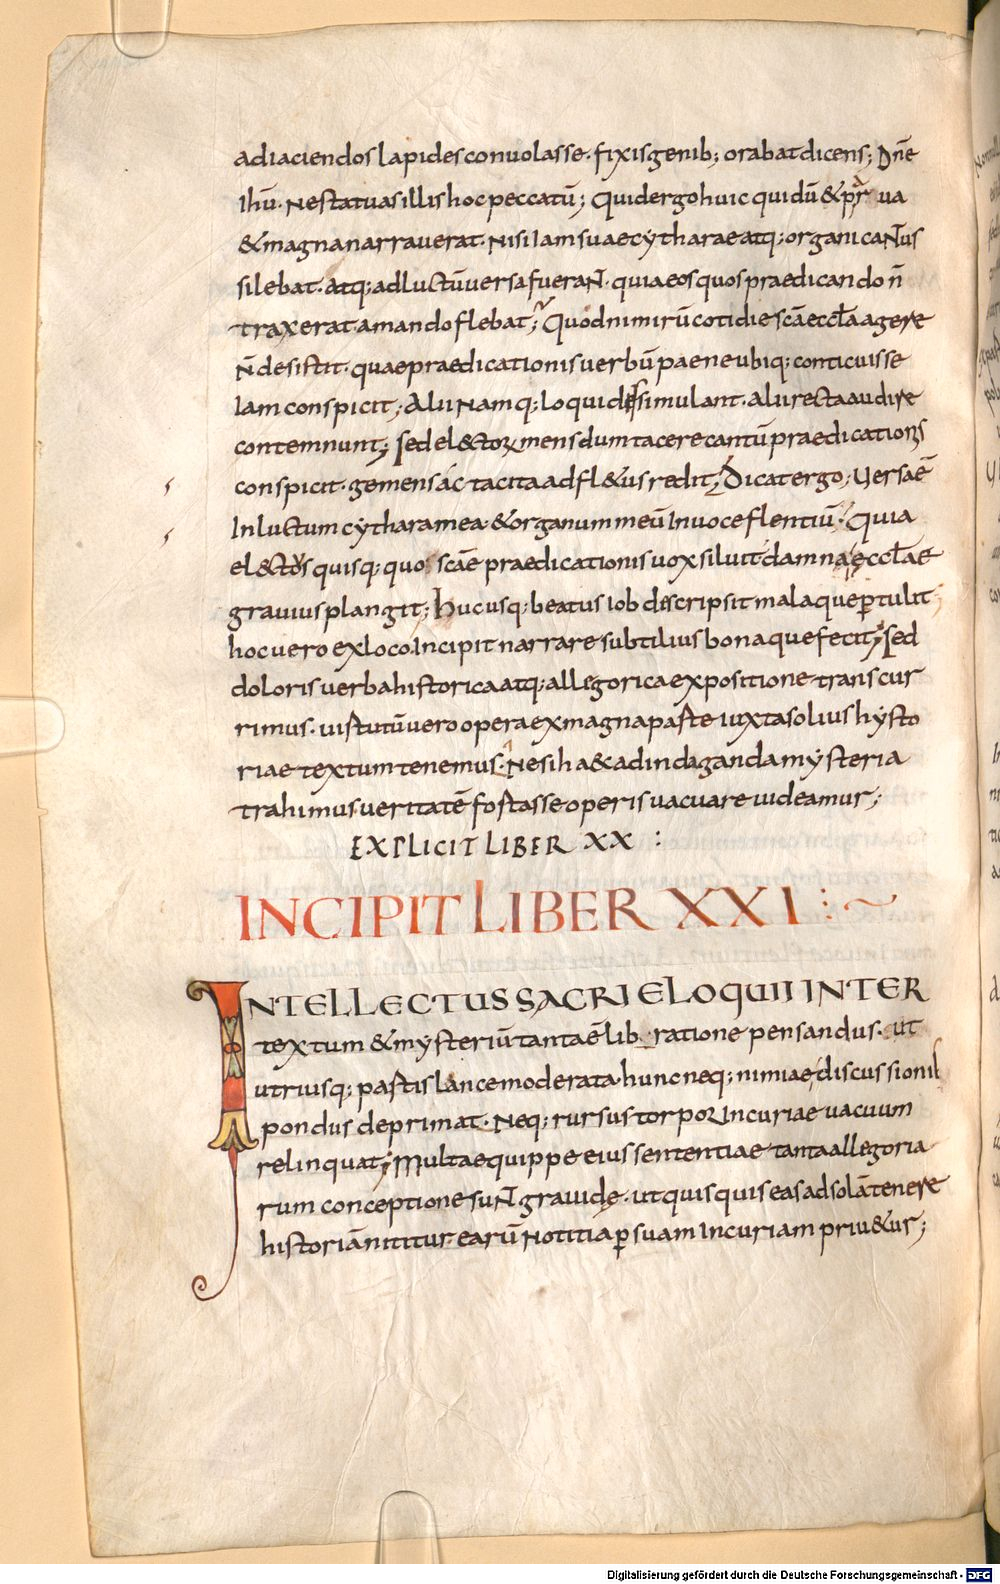 adiaciendos lapides conuolasse · fixis genib; orabat dicens; Dñe
ihū · Ne statuas illis hoc peccatū; Quid ergo huic quidū & pr̄ua
& magna narrauerat · Nisi iam suae cytharae atq; organi caNus
silebat · atq; ad luctū uersa fueraN · quia eos quos praedicando ñ
traxerat amando flebat; Quod nimirū cotidie scā eccła agere
ñ desistit · quae praedicationis uerbū paene ubiq; conticuisse
iam conspicit; Alii Namq; loqui dissimulant · alii recta audire
contemnunt; sed el&tor mens dum tacere cantū praedicationis
conspicit · gemens ác tacita ad fl&us redit; Dicat ergo; Uersa ē
in luctum cythara mea · & organum meū in uoce flentiū; Quia
el&tus quisq; quo scāe praedicationis uox siluit damna eccłae
grauius plangit; Hucusq; beatus iob descripsit mala que ptulit
hoc uero ex loco incipit narrare subtilius bona que fecit; sed
doloris uerba historica atq; allegorica expositione transcur
rimus · uirtutū uero opera ex magna parte iuxta solius hysto
riae textum tenemus · Ne si ha&c ad indaganda mysteria
trahimus ueritatē fortasse operis uacuare uideamur;
EXPLICIT LIBER XX :
INCIPIT LIBER XXI
INTELLECTUS SACRI ELOQUII INTER
textum & mysteriū tanta ē lib ratione pensandus · ut
utriusq; partis lance moderata hunc neq; nimiae discussionis
pondus deprimat · Neq; rursus torpor incuriae uacuum
relinquat; Multae quippe eius sententiae tanta allegoria
rum conceptione suN grauide · ut quisquis eas ad solā tenere
historiā nititur earū Notitia p suam incuriam priu&ur;
Digitalisierung gefördert durch die Deutsche Forschungsgemeinschaft - DFG